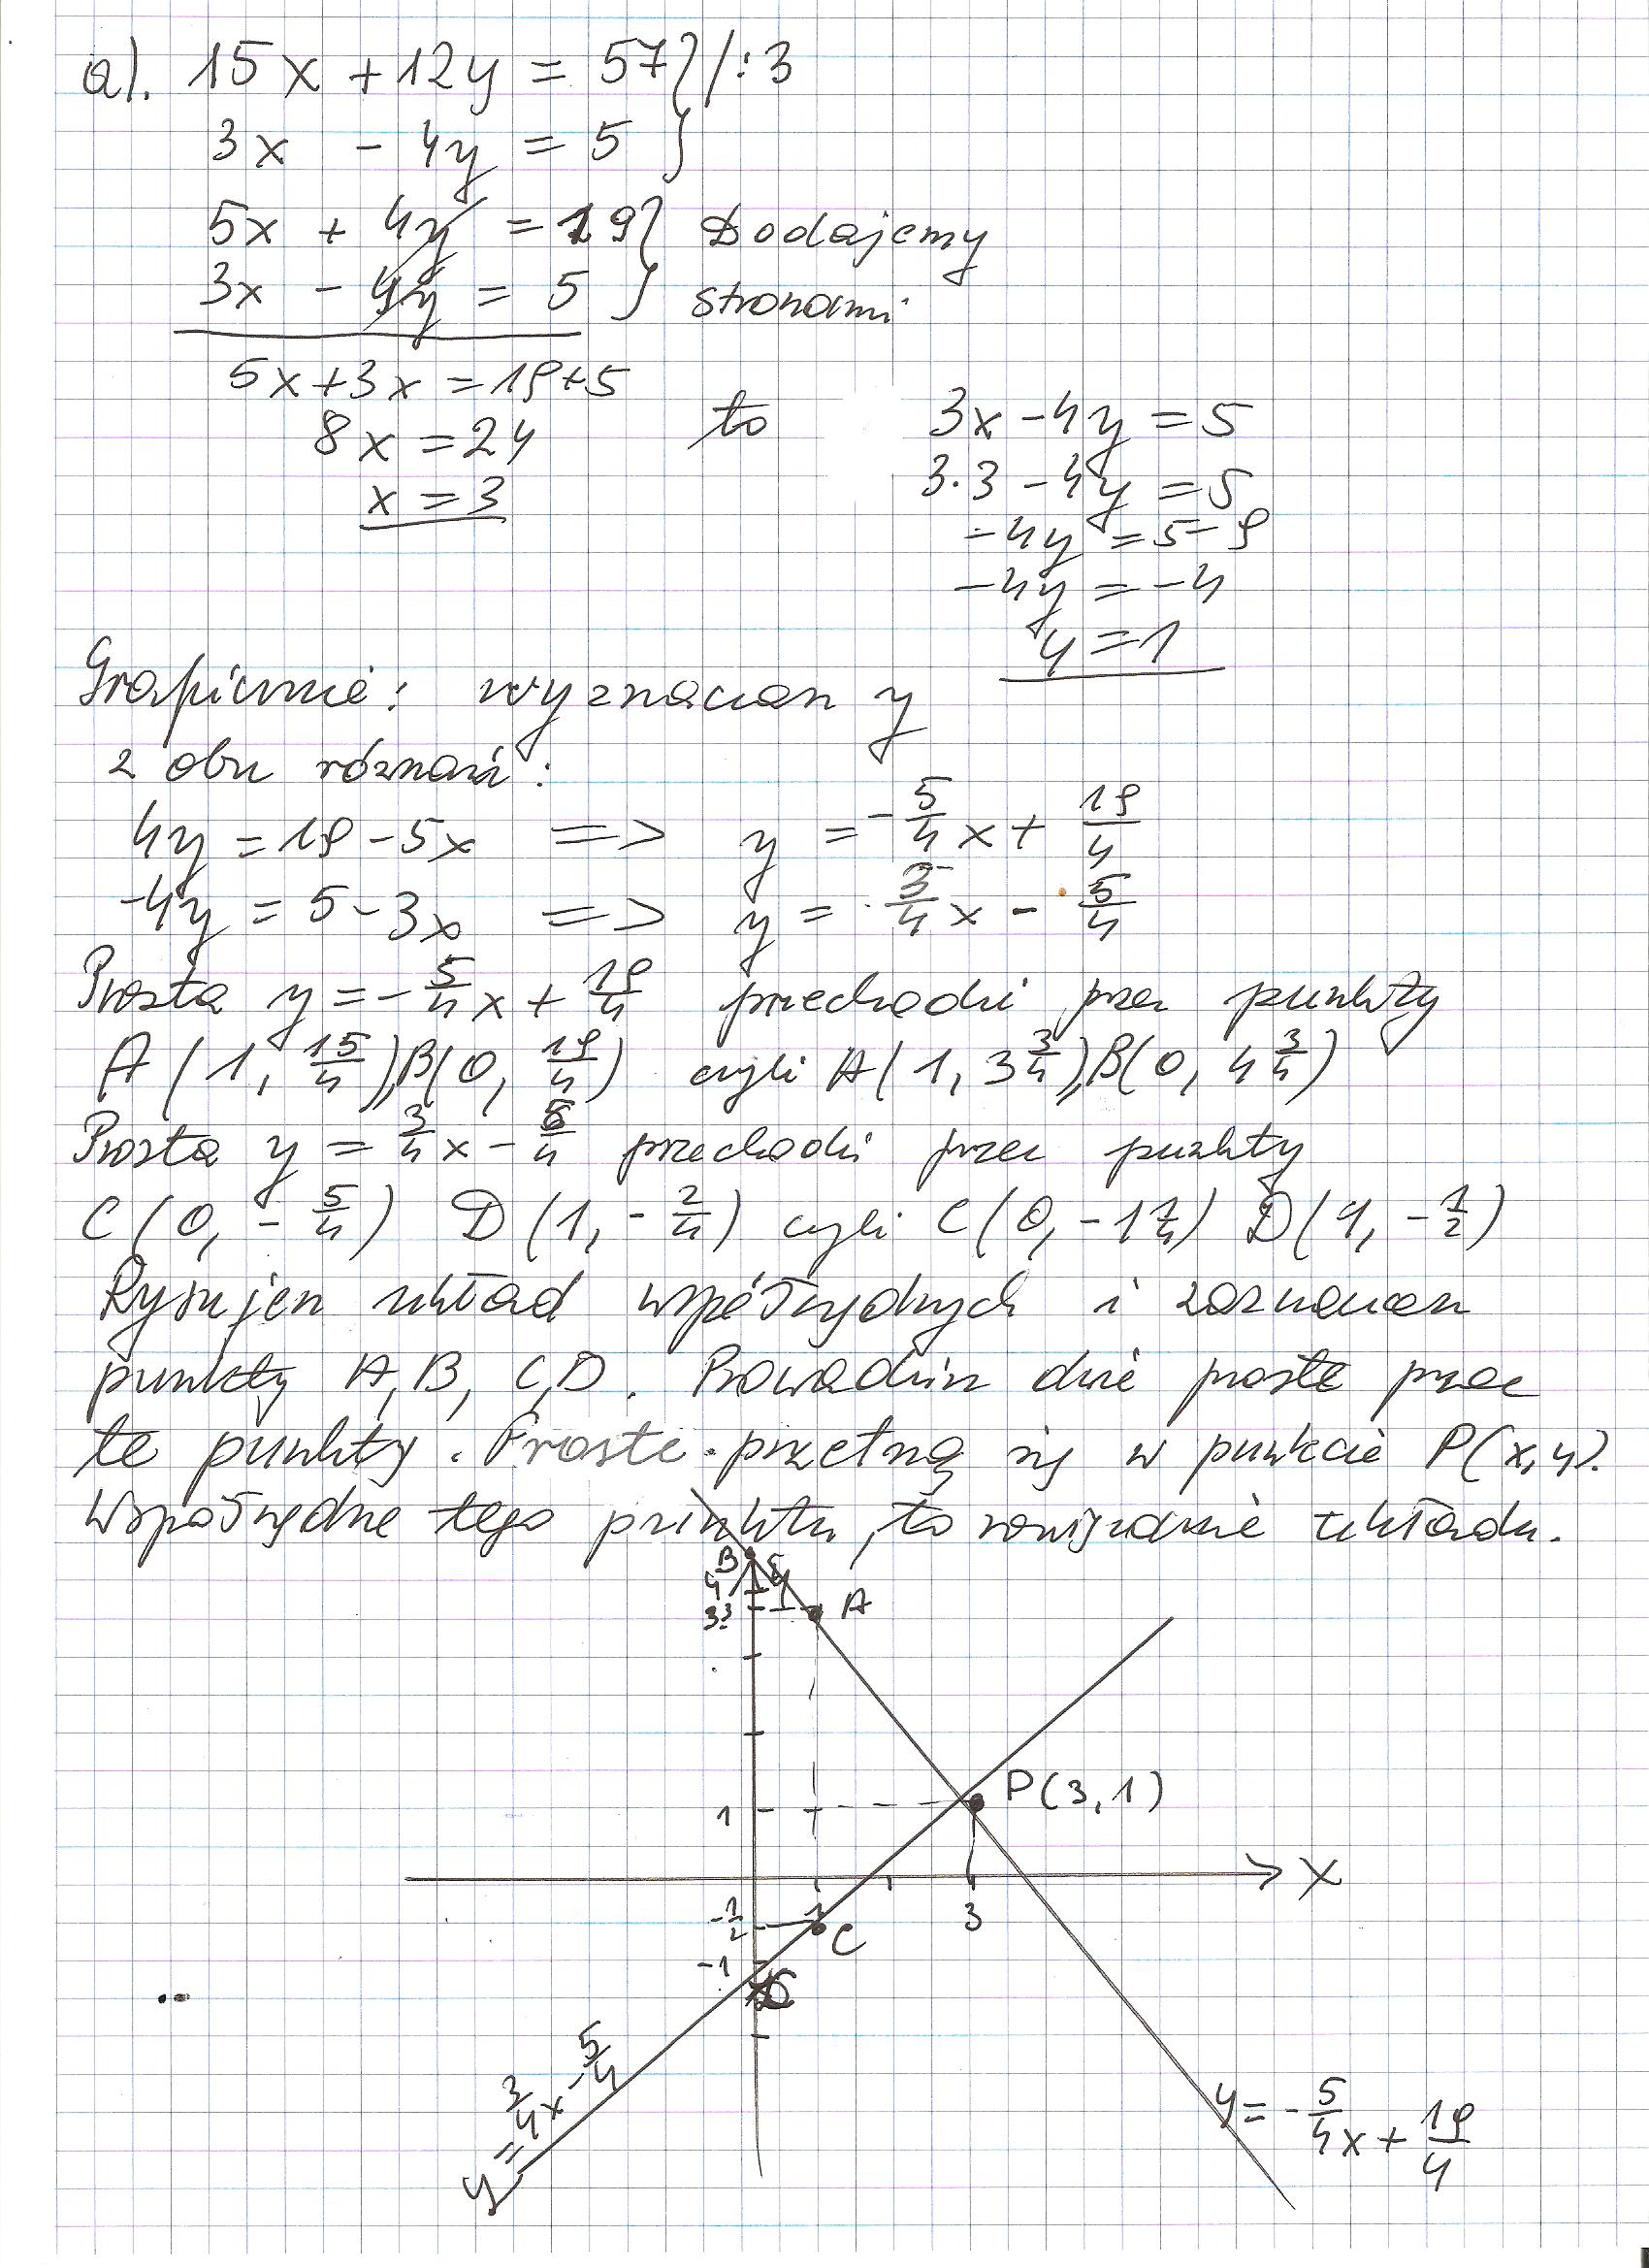 a). 15x + 12y = 57 } /:3
3x - 4y = 5 }
5x + 4y = 19 } Dodajemy
3x - 4y = 5 } stronami
5x+3x = 19+5
8x = 24 to
x = 3
3x - 4y = 5
3·3 - 4y = 5
-4y = 5-9
-4y = -4
y = 1
Graficznie: wyznaczam y
z obu równań:
4y = 19 - 5x => y = -5/4 x + 19/4
-4y = 5 - 3x => y = 3/4 x - 5/4
Prosta y = -5/4 x + 19/4 przechodzi przez punkty
A(1, 15/4), B(0, 19/4) czyli A(1, 3 3/4), B(0, 4 3/4)
Prosta y = 3/4 x - 5/4 przechodzi przez punkty
C(0, -5/4) D(1, -2/4) czyli C(0, -1 1/4) D(1, -1/2)
Rysujem układ współrzędnych i zaznaczam
punkty A, B, C, D. Prowadzim dwie proste przez
te punkty. Proste przetną się w punkcie P(x,y).
Współrzędne tego punktu, to rozwiązanie układu.
B 5 y
4
3 3/4 A
1 P(3,1)
X
-1/2 1 C 3
-1
y = 3/4 x - 5/4
y = -5/4 x + 19/4